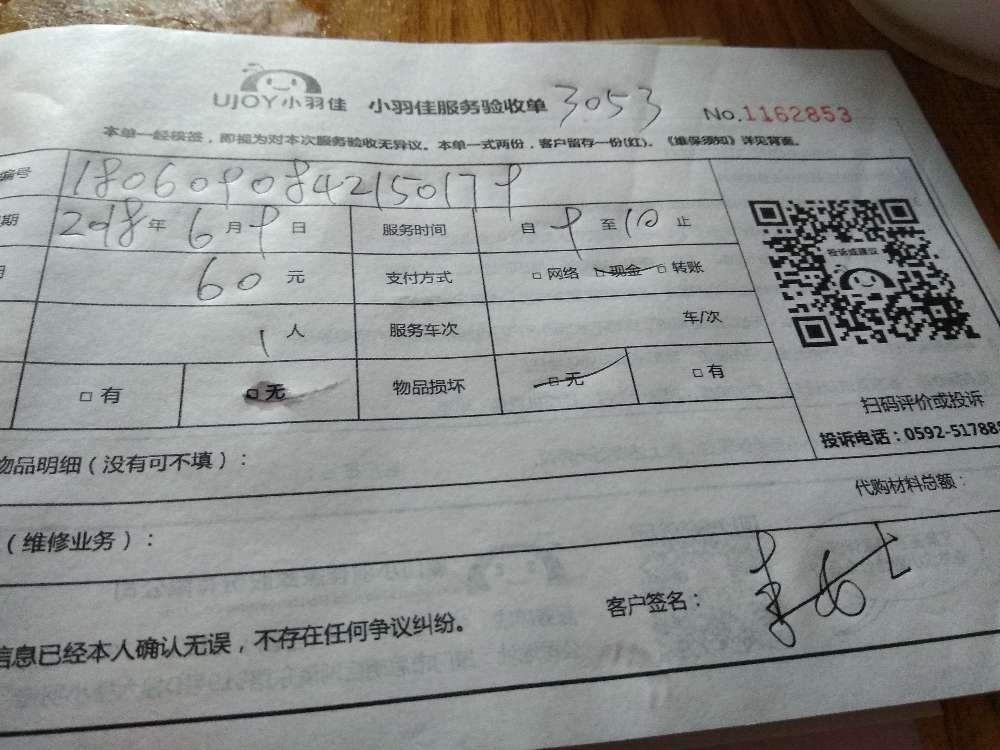 UJOY小羽佳 小羽佳服务验收单 3053 No.1162853
本单一经核签，即视为对本次服务验收无异议。本单一式两份，客户留存一份(红)。《维保须知》详见背面。
编号 1806090842150179
期 2018年 6月9日 服务时间 自 9 至 10 止
60 元 支付方式 □ 网络 □ 现金 □ 转账
1 人 服务车次 车/次
□ 有 □ 无 物品损坏 □ 无 □ 有
投诉或建议
扫码评价或投诉
投诉电话：0592-51788
物品明细（没有可不填）：
代购材料总额：
（维修业务）：
客户签名：
信息已经本人确认无误，不存在任何争议纠纷。